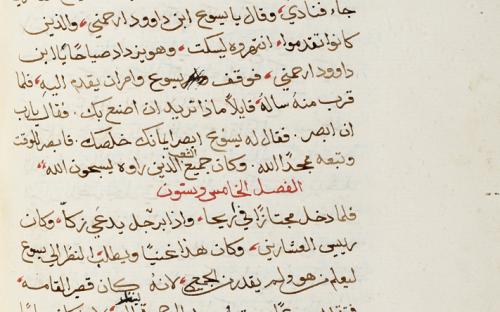 جاء فنادي، وقال يا يسوع ابن داوود ارحمني، والذين
كانوا تقدموا، انتهروه ليسكت، وهو يزداد صياحًا يا ابن
داوود ارحمني، فوقف يسوع وامر ان يقدم اليه، فلما
قرب منهُ سالهُ قايلاً ماذا تريد ان اصنع بك. فقال يا رب
ان ابصر. فقال له يسوع ابصر ايمانك خلصك. فابصر للوقت
وتبعه ممجدًا الله. وكان جميع الشعب الذين راوه يسبحون الله
الفصل الخامس وستون
فلما دخل مجتازًا في اريحا، واذا برجل يدعي زكا، وكان
رييس العشارين، وكان هذا غنيًا ويطلب النظر الي يسوع
ليعلم من هو ولم يقدر من الجمع، لانهُ كان قصير القامه،